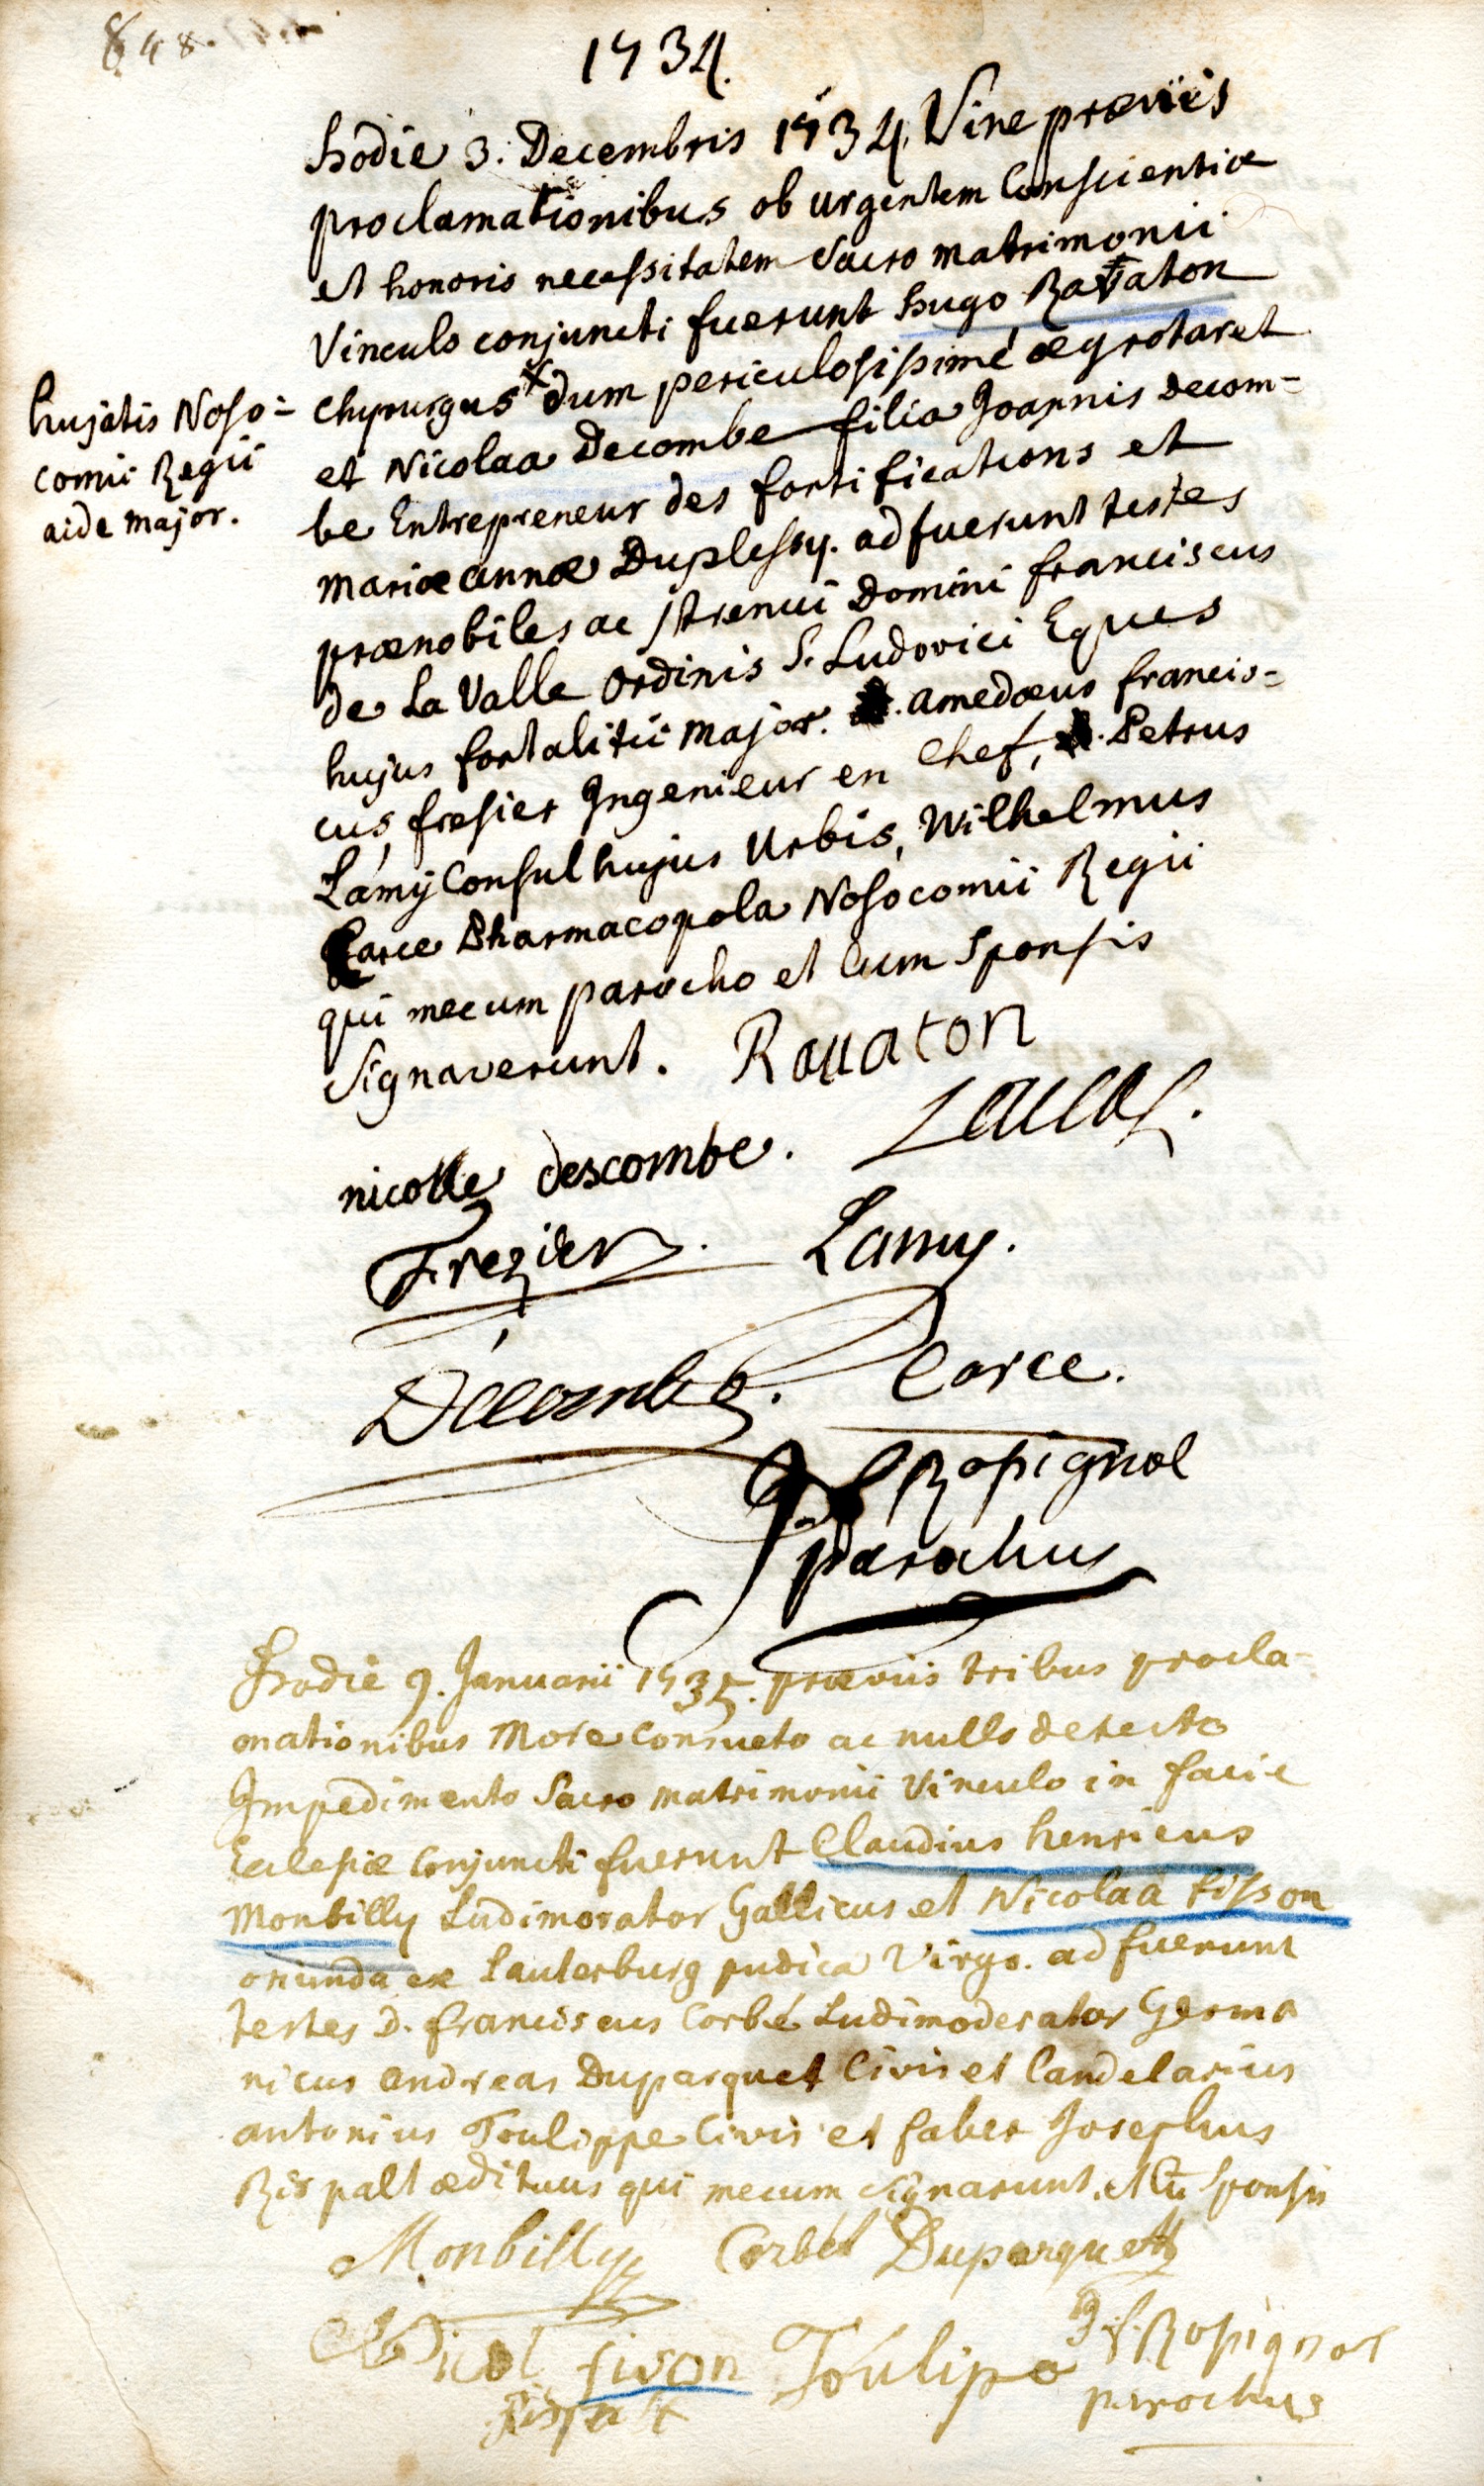 848.
1734.
hodie 3. Decembris 1734. Sine præviis
proclamationibus ob urgentem Conscientiæ
et honoris necessitatem Sacro matrimonii
Vinculo conjuncti fuerunt hugo Ravaton
chyrurgus dum periculosissimé ægrotaret
hujatis Noso=
comii Regii
aide major.
et Nicolaa Decombe filia Joannis Decom=
be Entrepreneur des fortifications et
mariæ annæ Duplessy. adfuerunt testes
prænobiles ac strenui Domini franciscus
de La Valle ordinis S. Ludovici Eques
hujus fortalitii major. amedæus francis=
cus fresier Ingenieur en Chef, Petrus
Lamÿ Consul hujus Urbis, Wilhelmus
Earce Pharmacopola Nosocomii Regii
qui mecum parocho et Cum Sponsis
Signaverunt. Rauaton
nicolle descombe.
Frezier. Lamy.
Décombe. Earce.
Rossignol
parochus
hodie 9. Januarii 1735. præviis tribus procla-
mationibus More Consueto ac nullo detecto
Impedimento Sacro matrimonii Vinculo in facie
Eclesiæ Conjuncti fuerunt Claudius henricus
Monbilly Ludimorator Gallicus et Nicolaa fisson
oriunda ex Lauterburg pudica Virgo. adfuerunt
testes D. franciscus Corbé Ludimoderator Germa
nicus andreas Duparquet Civis et Candelarius
antonius Toulippe Civis et faber Josephus
Rispalt ædituus qui mecum signarunt. et Cū Sponsis
Monbilly Corbé Duparquett
Nicol fison Toulipe J. f. Rossignol
Rispalt parochus